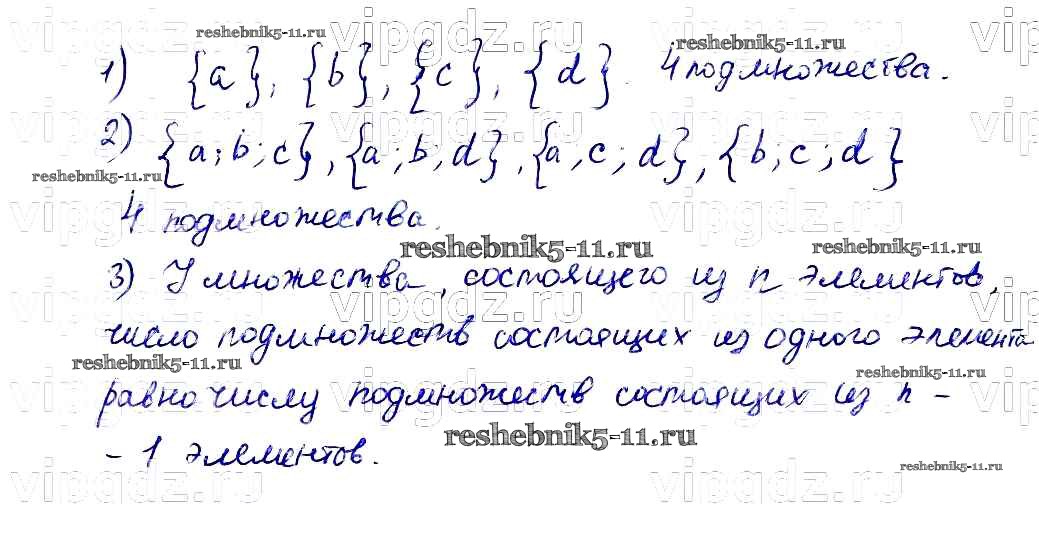 vipgdz.ru vipgdz.ru vipgdz.ru
reshebnik5-11.ru reshebnik5-11.ru
1) {a}, {b}, {c}, {d}. 4 подмножества.
2) {a; b; c}, {a; b; d}, {a, c; d}, {b; c; d}
reshebnik5-11.ru
4 подмножества.
reshebnik5-11.ru reshebnik5-11.ru
3) У множества, состоящего из n элементов,
число подмножеств состоящих из одного элемента
reshebnik5-11.ru reshebnik5-11.ru
равно числу подмножеств состоящих из n -
reshebnik5-11.ru
- 1 элементов.
reshebnik5-11.ru
vipgdz.ru vipgdz.ru vipgdz.ru